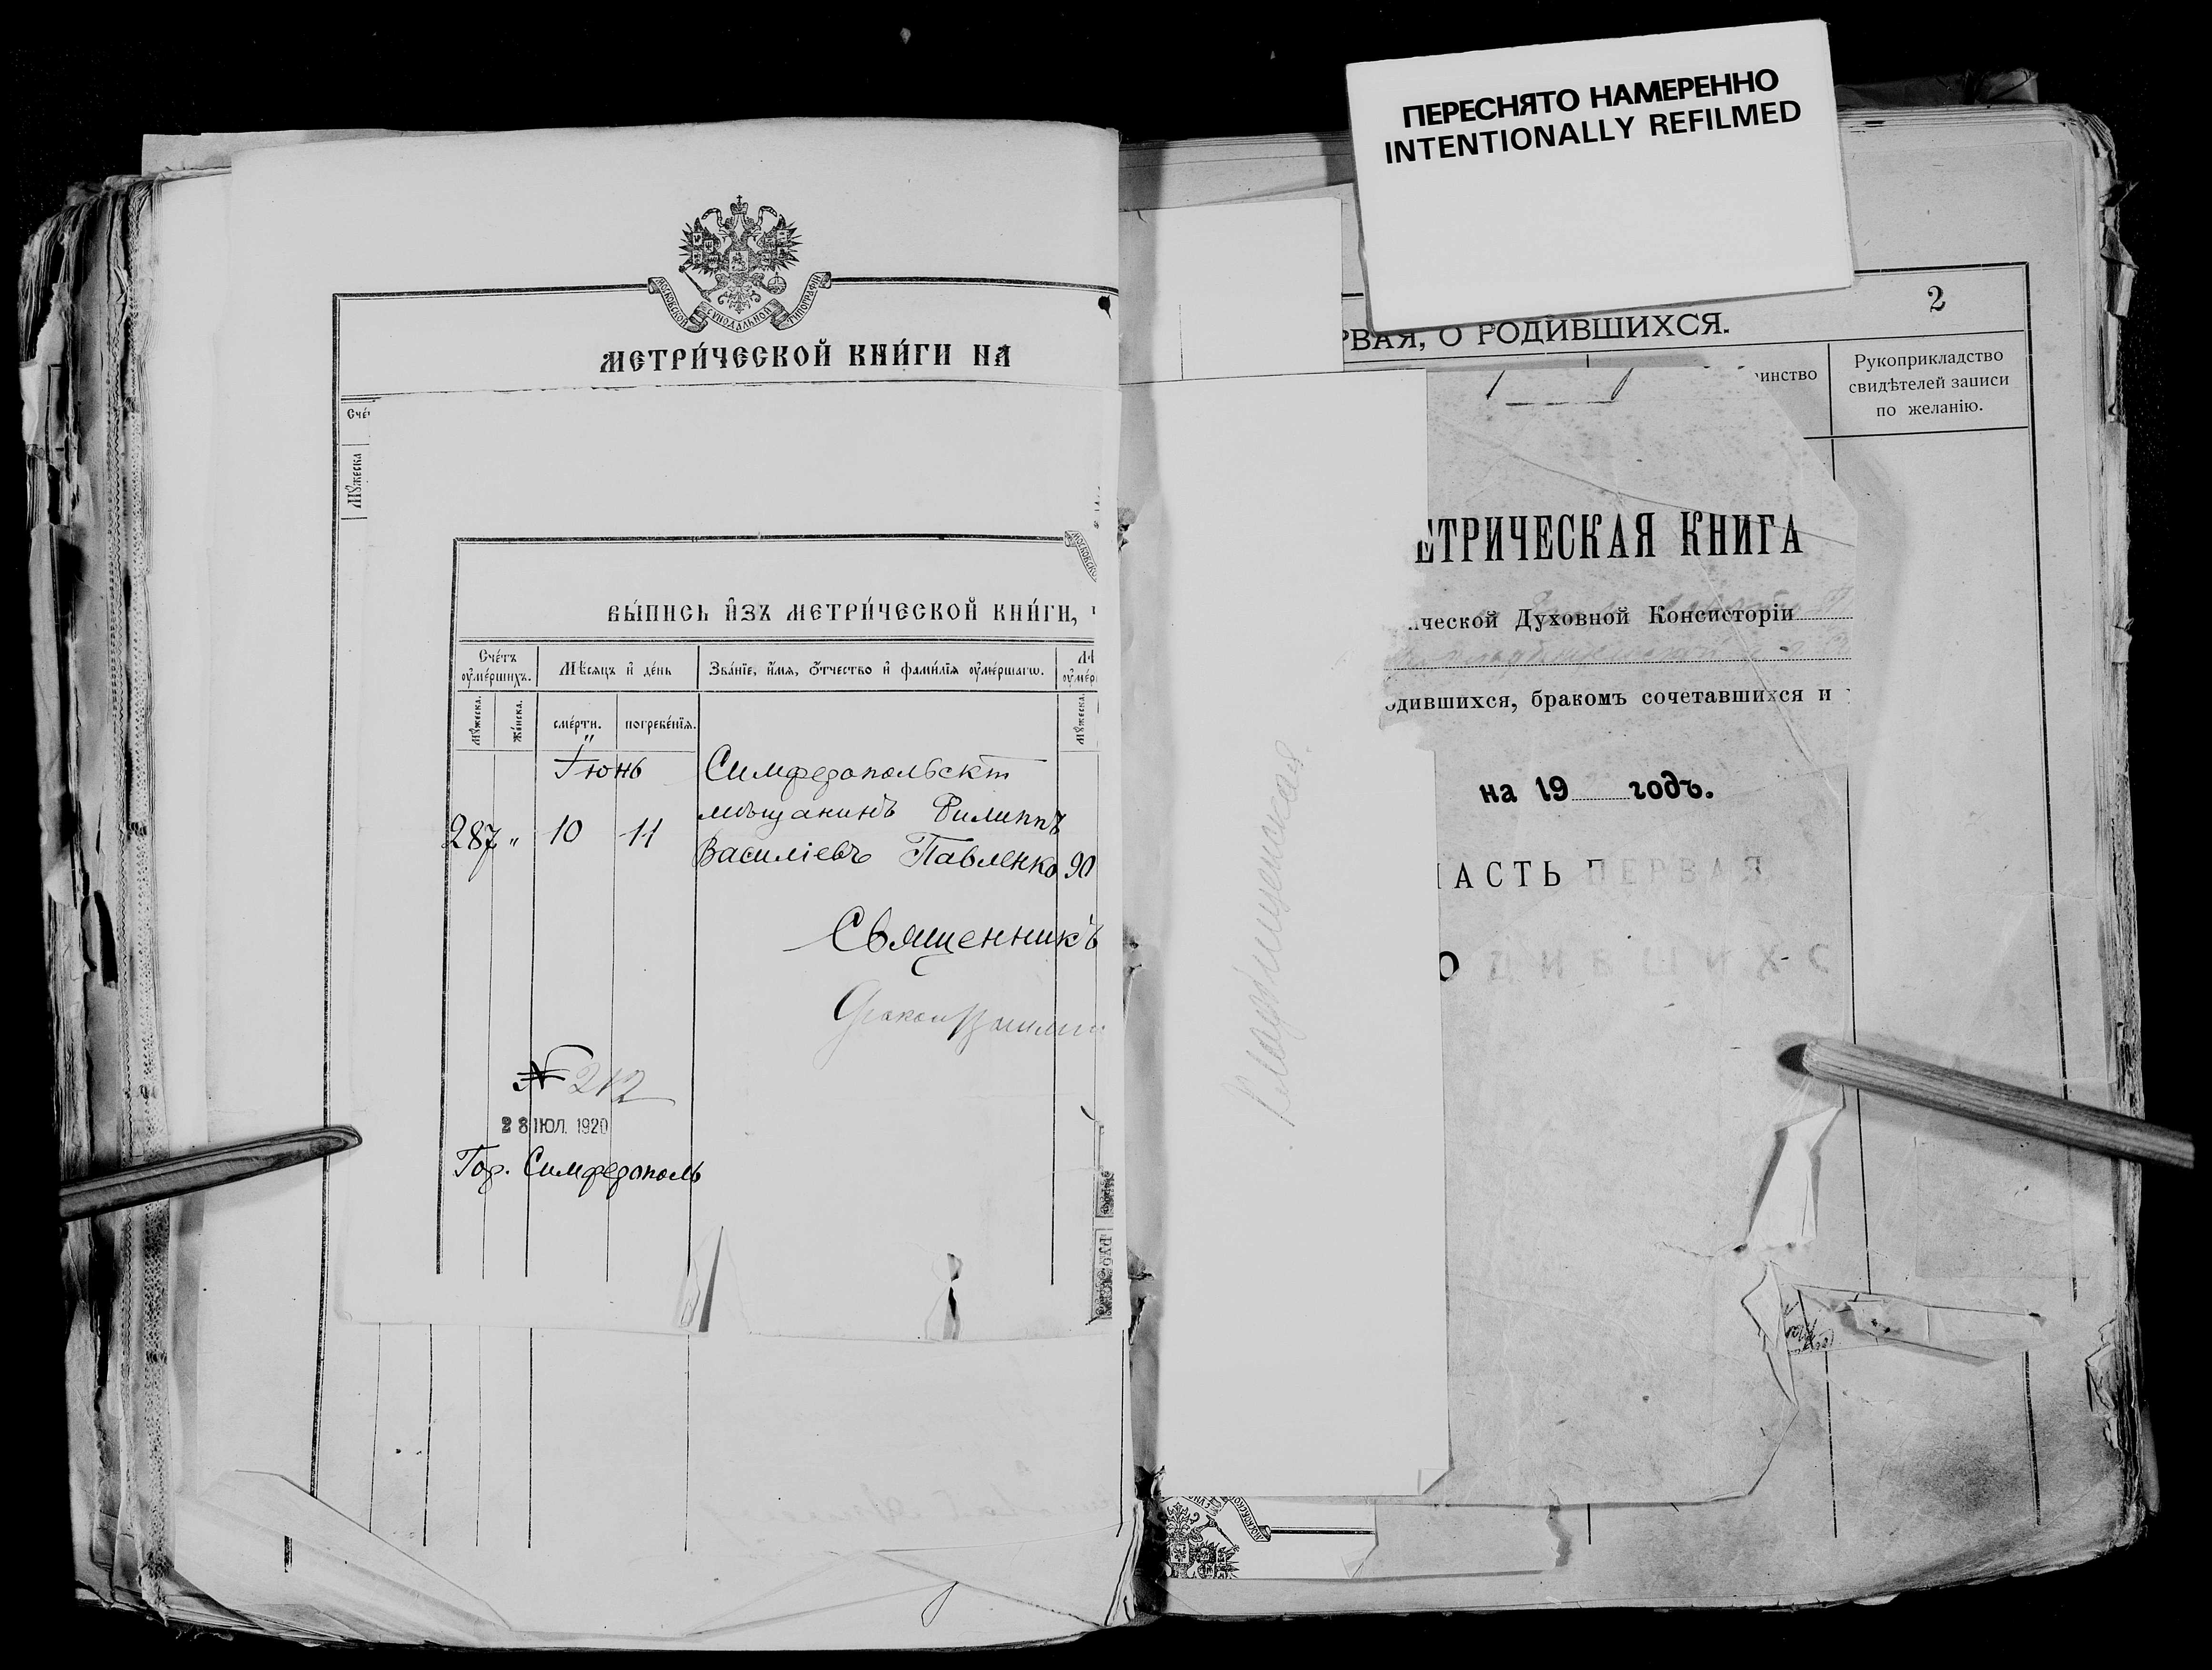 ПЕРЕСНЯТО НАМЕРЕННО
INTENTIONALLY REFILMED
МОСКОВСКОЙ СѴНОДАЛЬНОЙ ТИПОГРАФІИ
МЕТРИ́ЧЕСКОЙ КНИ́ГИ НА
Сче́
Мꙋ́жеска
МОСКОВСКО
ВЫ́ПИСЬ И҆ЗЪ МЕТРИ́ЧЕСКОЙ КНИ́ГИ,
Сче́тъ ᲂу҆ме́ршихъ.
Мѣ́сяцъ и҆ де́нь
Зва́нїе, и҆́мя, ѻ҆́тчество и҆ фами́лїя ᲂу҆ме́ршагѡ.
Мꙋ́жеска.
Же́нска.
сме́рти.
погребе́нїя.
Мꙋ́жеска
Іюнь
Симферопольскій
мѣщанинъ Филиппъ
287 " 10 11 Василіевъ Павленко 90
Священникъ
№ 212
28 ІЮЛ. 1920
Гор. Симферополь
РВАЯ, О РОДИВШИХСЯ.
2
инство
Рукоприкладство
свидѣтелей записи
по желанію.
ЕТРИЧЕСКАЯ КНИГА
ической Духовной Консисторіи
одившихся, бракомъ сочетавшихся и
на 19 годъ.
АСТЬ ПЕРВАЯ
ОДИВШИХС